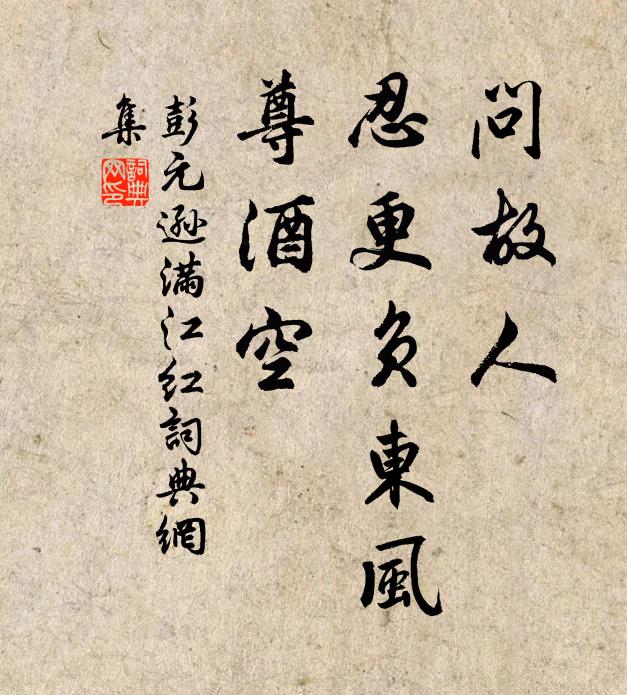 問故人
忍更負東風
尊酒空
彭元遜滿江紅詞典網
集
詞典網印